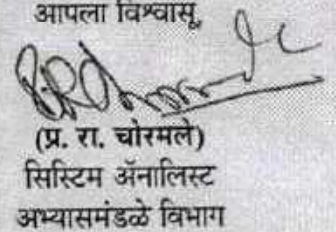 आपला विश्वासू,
(प्र. रा. चोरमले)
सिस्टिम ॲनालिस्ट
अभ्यासमंडळे विभाग